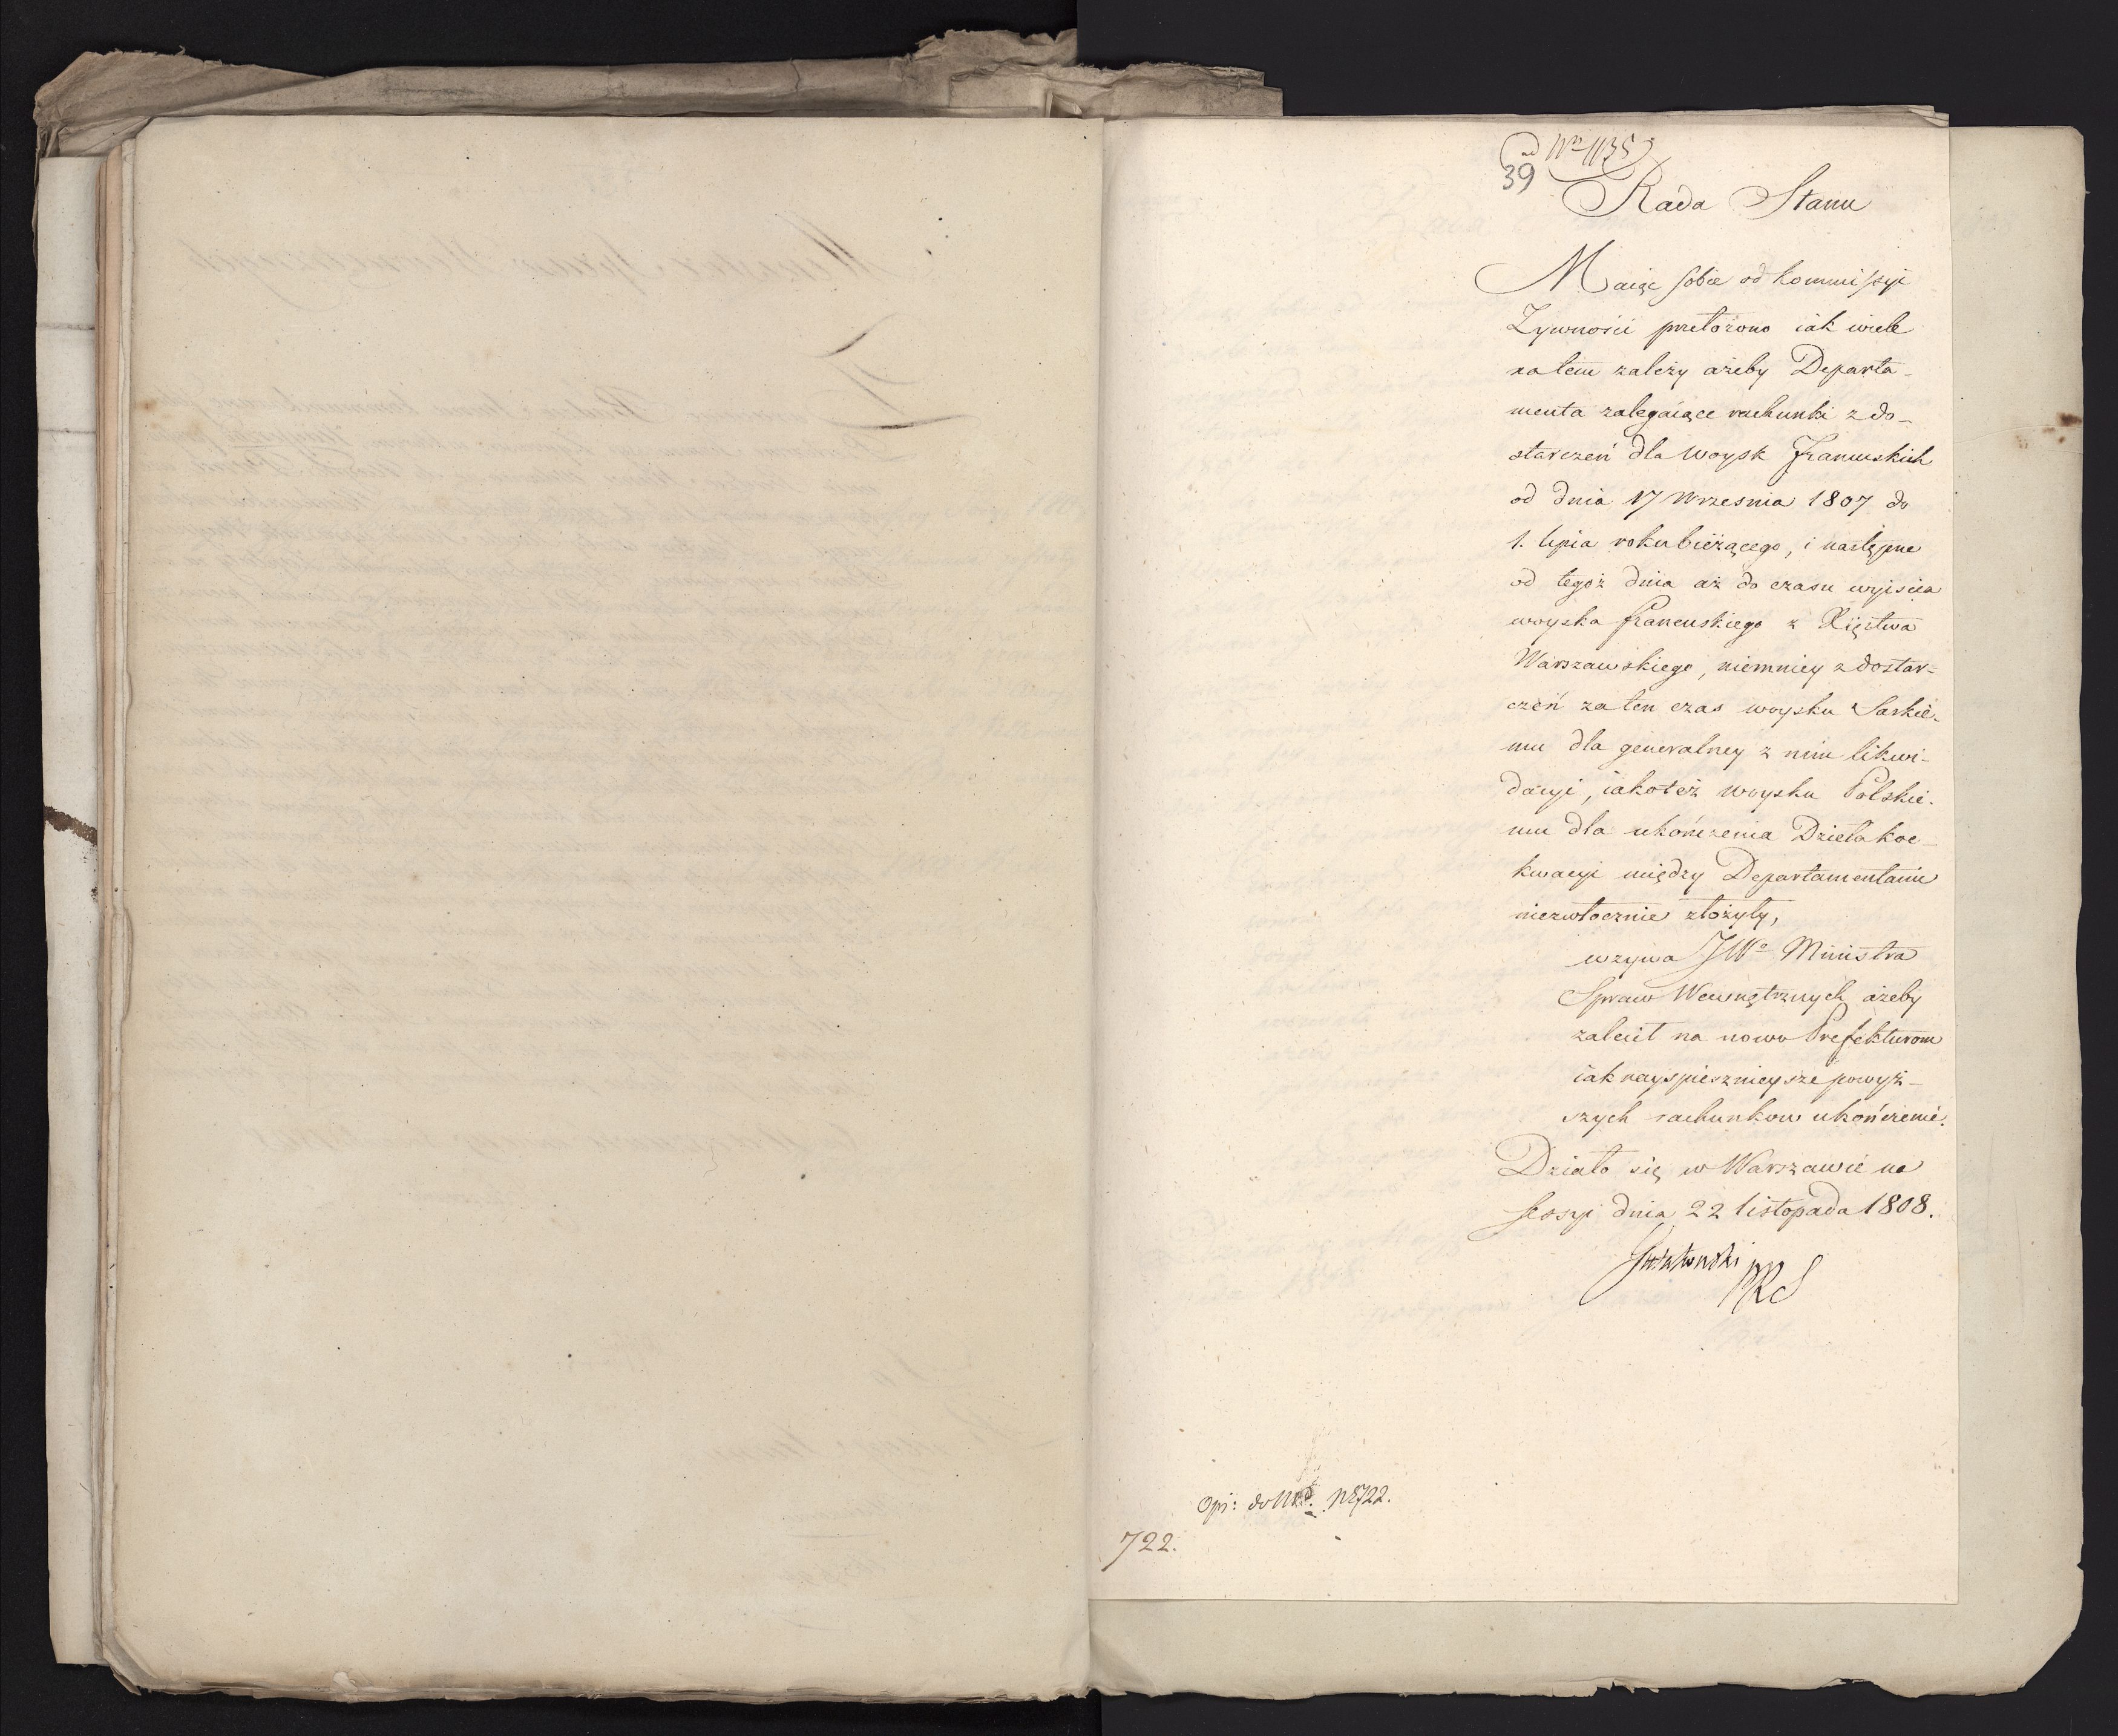 ad Nrm 1135
39
Rada Stanu
Maiąc sobie od Kommissyi
Zywności przełożono iak wiele
na tem zależy ażeby Departa-
menta zalegaiące rachunki z do-
starczeń dla Woysk Francuskich
od dnia 17 Wrzesnia 1807 do
1. lipca roku bieżącego, i następne
od tegoż dnia aż do czasu wyiscia
woyska francuskiego z Xięstwa
Warszawskiego, niemniey z dostar-
czeń za ten czas woysku Saskie-
mu dla generalney z nim likwi-
dacyi, iakoteż woysku Polskie-
mu dla ukończenia Dzieła koe-
kwacyi między Departamentami
niezwłocznie złożyły,
wzywa JWo Ministra
Spraw Wewnętrznych ażeby
zalecił na nowo Prefekturom
iak nayspieszneysze powyż-
szych rachunkow ukończenie.
Działo się w Warszawie na
Sessyi dnia 22 listopada 1808.
PRS
722.